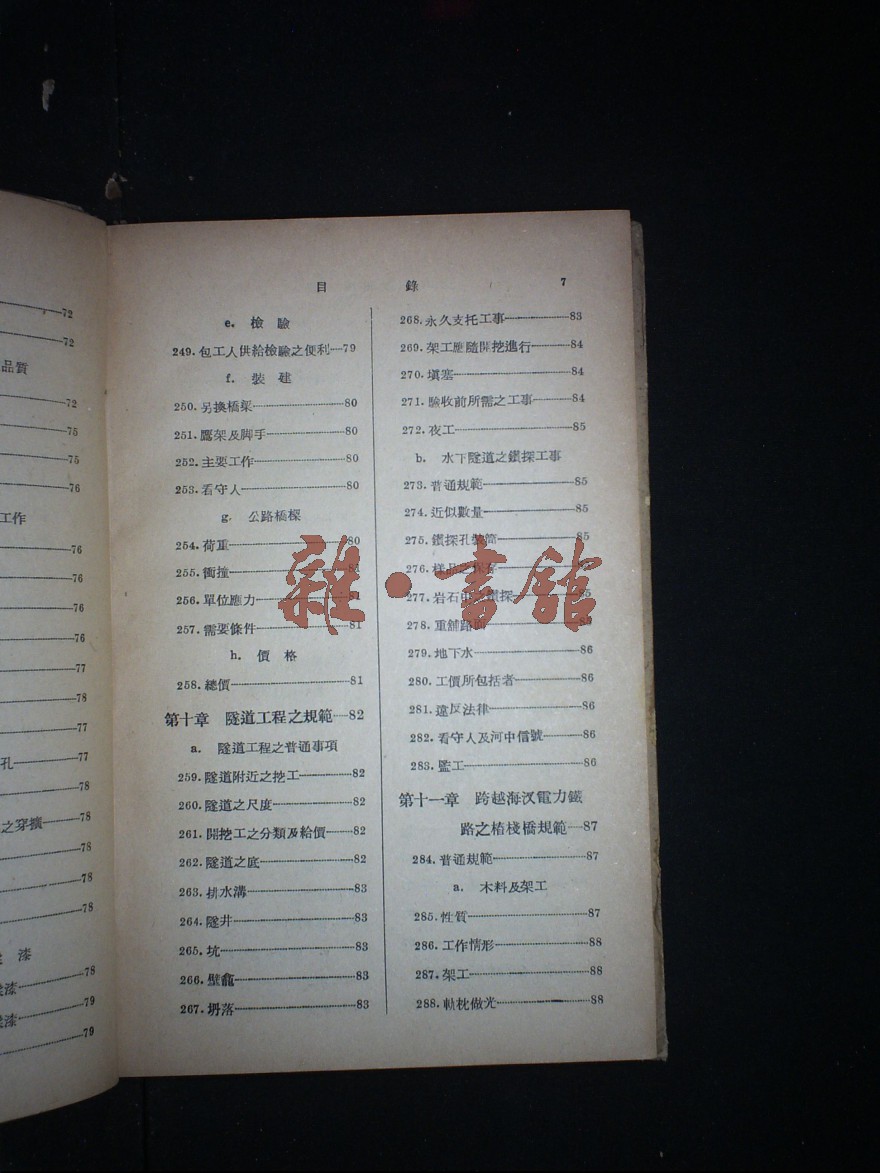 72
72
品質
72
75
75
76
工作
76
76
76
76
77
78
77
孔 77
78
之穿擴 78
78
78
78
漆
漆 78
漆 79
79
目 錄 7
e. 檢驗
249. 包工人供給檢驗之便利 79
f. 裝建
250. 另換橋架 80
251. 鷹架及脚手 80
252. 主要工作 80
253. 看守人 80
g. 公路橋樑
254. 荷重 80
255. 衝撞 81
256. 單位應力 81
257. 需要條件 81
h. 價格
258. 總價 81
第十章 隧道工程之規範 82
a. 隧道工程之普通事項
259. 隧道附近之挖工 82
260. 隧道之尺度 82
261. 開挖工之分類及給價 82
262. 隧道之底 82
263. 排水溝 83
264. 隧井 83
265. 坑 83
266. 壁龕 83
267. 坍落 83
268. 永久支托工事 83
269. 架工應隨開挖進行 84
270. 塡塞 84
271. 驗收前所需之工事 84
272. 夜工 85
b. 水下隧道之鑽探工事
273. 普通規範 85
274. 近似數量 85
275. 鑽探孔裝筒 85
276. 樣品之
277. 岩石 鑽探 85
278. 重舖路
279. 地下水 86
280. 工價所包括者 86
281. 違反法律 86
282. 看守人及河中信號 86
283. 監工 86
第十一章 跨越海汊電力鐵
路之樁棧橋規範 87
284. 普通規範 87
a. 木料及架工
285. 性質 87
286. 工作情形 88
287. 架工 88
288. 軌枕做光 88
雜·書館